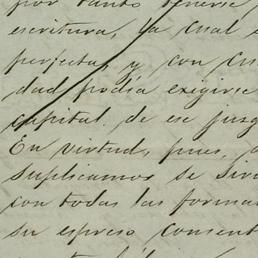 por tanto tenerse
escritura, la cual e
perfecta, y con cu
dad podia exigirse
capital de ese juzg
En virtud, pues, a
suplicamos se sirv
con todas las forma
su espreso consent